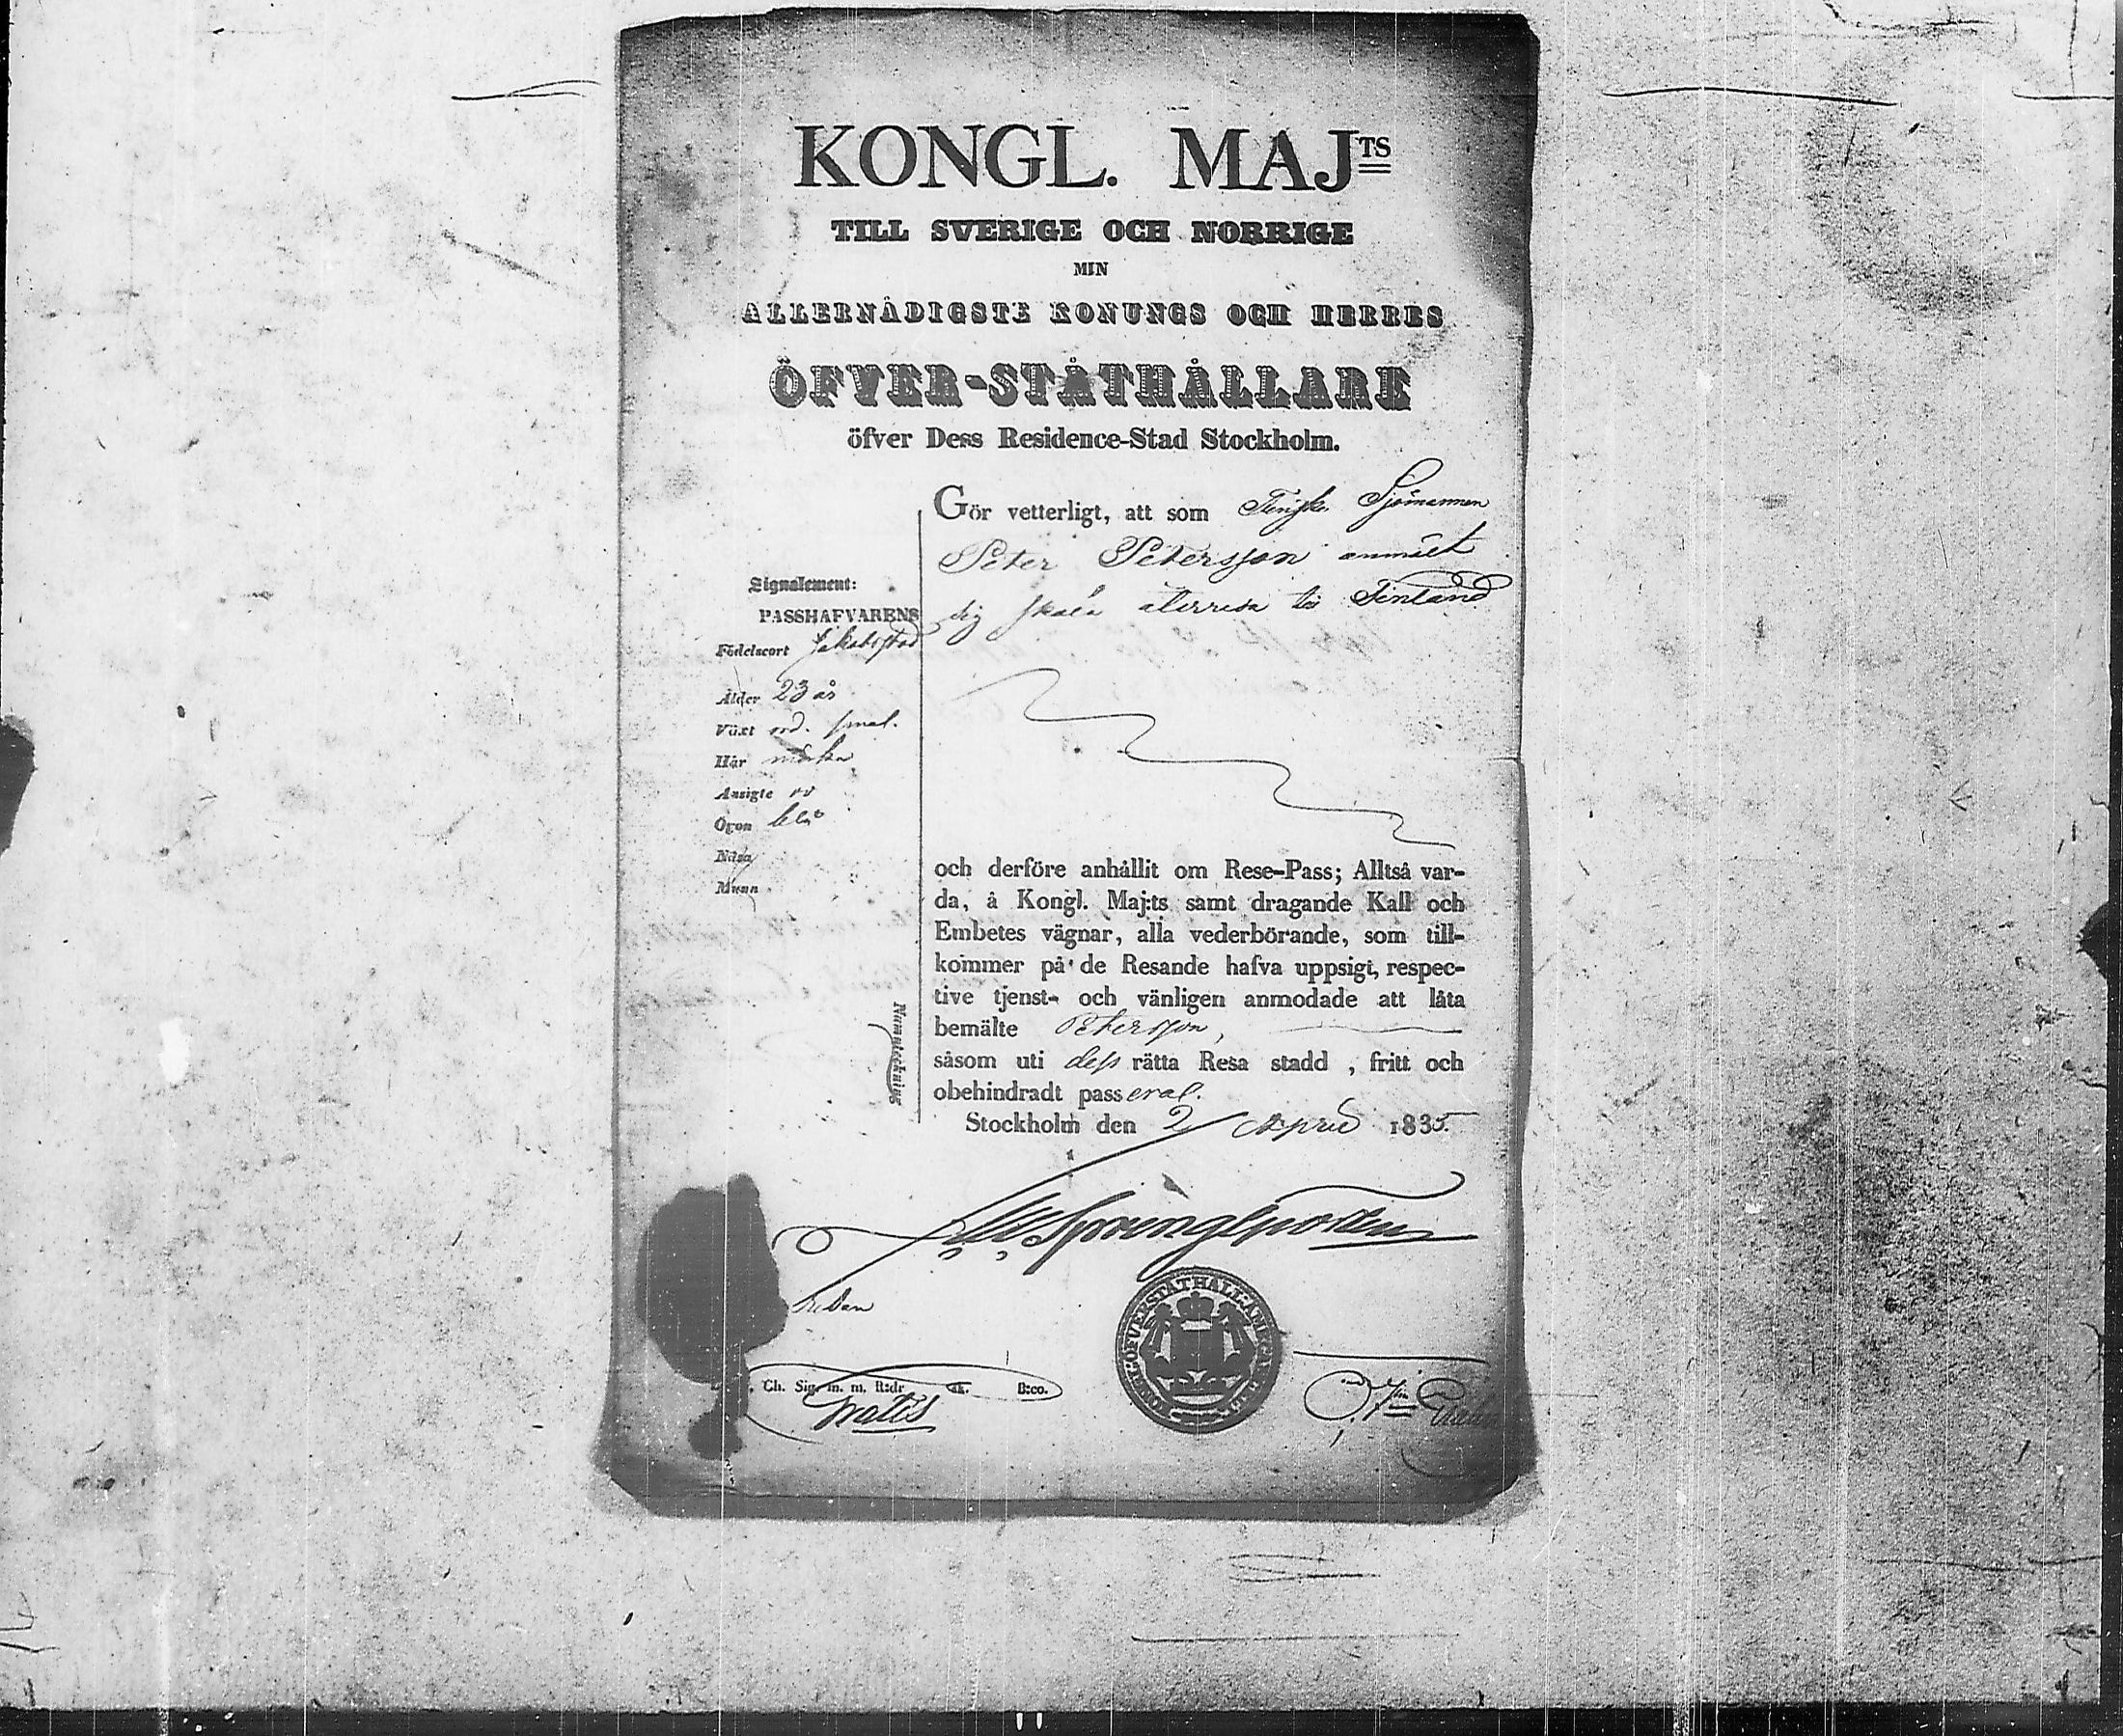 KONGL. MAJTS
TILL SVERIGE OCH NORRIGE
MIN
ALLERNÅDIGSTE KONUNGS OCH HERRES
ÖFVER-STÅTHÅLLARE
öfver Dess Residence-Stad Stockholm.
Gör vetterligt, att som Finske Sjömannen
Peter Petersson anmält
sig skola återresa till Finland
Signalement:
PASSHAFVARENS
Födelseort Jakobstad
Ålder 23 år
Växt ord. smal.
Hår mörka
Ansigte
Ögon blå
Näsa
Munn
Namnteckning
och derföre anhållit om Rese-Pass; Alltså var-
da, å Kongl. Maj:ts samt dragande Kall och
Embetes vägnar, alla vederbörande, som till-
kommer på de Resande hafva uppsigt, respec-
tive tjenst- och vänligen anmodade att låta
bemälte Petersson,
såsom uti dess rätta Resa stadd, fritt och
obehindradt passera.
Stockholm den 2 April 1835.
Sprengtporten
Ch. Sig. m. m. R:dr sk. B:co.
Gratis